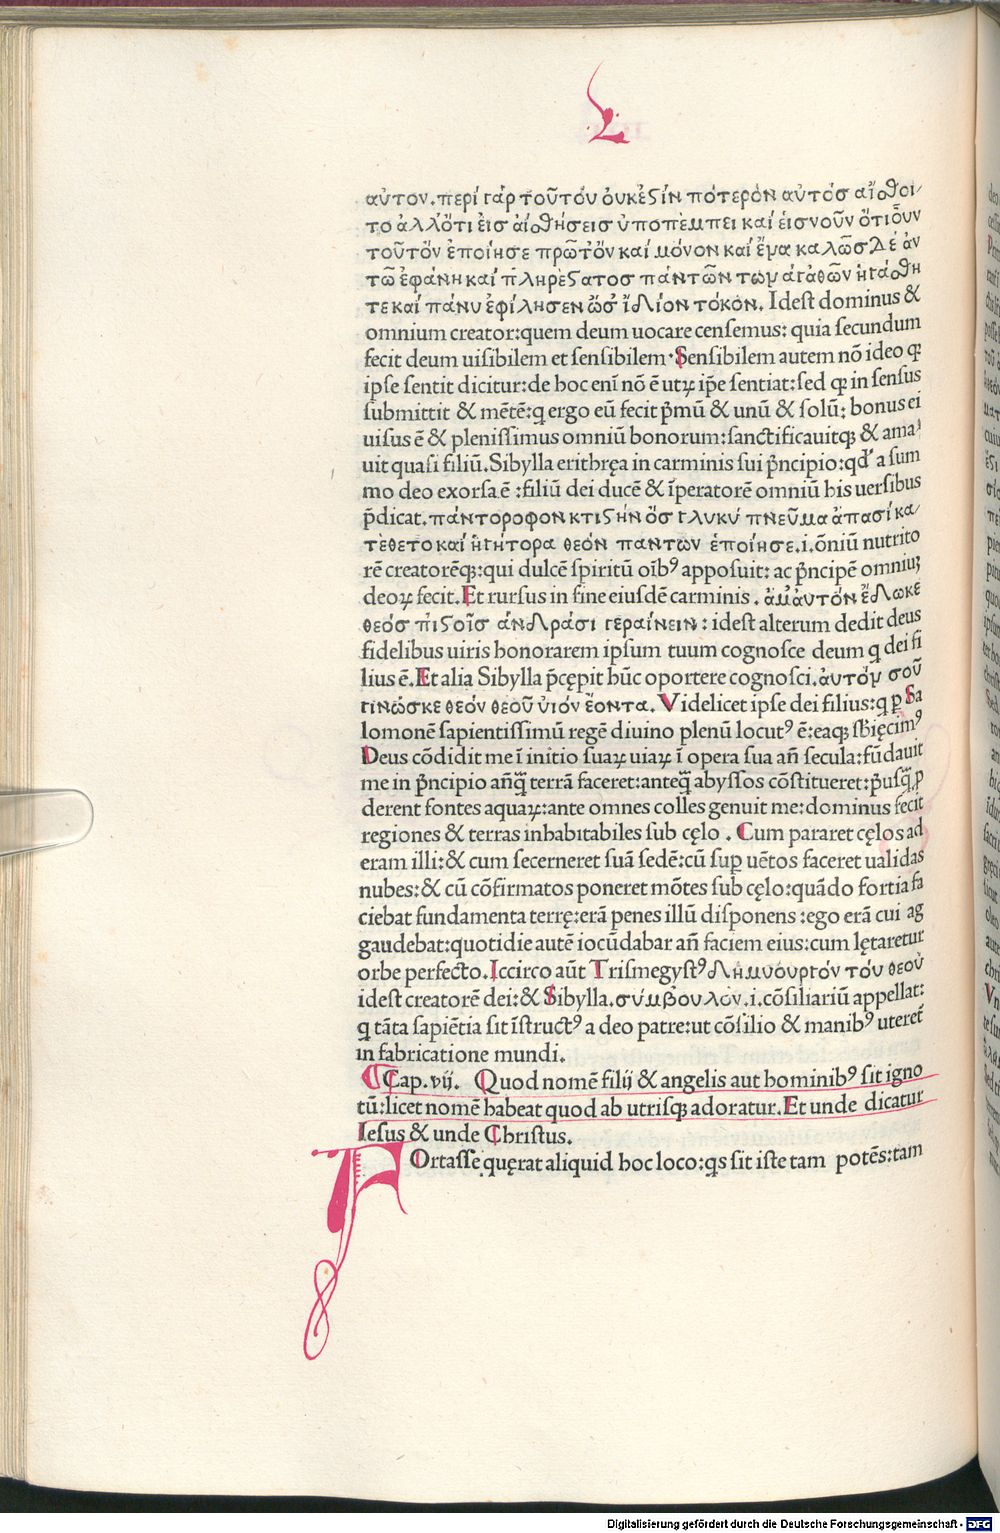 L
αὐτον. περί γάρ τοῦτόν ὀυκέϛίν πότερόν αὐτόσ αἴσθοι
το ἀλλὅτι ἐισ ἀίσθήσεισ ὑποπὲμπει καί ἑισνοῦν ὅτιοὖν
τοῦτόν ἐποίησε πρῶτόν και μόνον και ἕνα καλῶσ Δέ ἀν
τῶ ἐφάνη καί πληρέϛατοσ πάντῶν τῶν ἀγάθῶν ἡγάσθη
τε καί πάνυ ἐφίλησεν ὥσ ἴδλίον τόκον. Idest dominus &
omnium creator:quem deum uocare censemus: quia secundum
fecit deum uisibilem et sensibilem·Sensibilem autem nō ideo qꝫ
ipse sentit dicitur:de hoc enī nō ē utꝝ ip̄e sentiat:sed qꝫ in sensus
submittit & mētē:q ergo eū fecit p̄mū & unū & solū: bonus ei
uisus ē & plenissimus omniū bonorum:sanctificauitqꝫ & ama
uit quasi filiū.Sibylla eritbręa in carminis sui p̄ncipio:qd' a sum
mo deo exorsa ē :filiū dei ducē & īperatorē omniū his uersibus
p̄dicat. πάντοροφον κτιϛήν ὅσ γλυκύ πνεῦμα ἀπασί κα
τέθετο καί ἡγήτορα θεόν παντων ἐποίησε.i.ōniū nutrito
rē creatorēqꝫ:qui dulcē spiritū oībꝰ apposuit: ac p̄ncipē omniuꝫ
deoꝝ fecit.Et rursus in fine eiusdē carminis . ἀμ̓αυτόν ἔδλωκε
θεόσ πἰϛοῖσ ἀνδλράσι γεραίνειν: idest alterum dedit deus
fidelibus uiris honorarem ipsum tuum cognosce deum q dei fi
lius ē.Et alia Sibylla p̄cępit hūc oportere cognosci.αυτόν σοῦ
γινώσκε θεόν θεοῦ ὑιόν ἔοντα. Videlicet ipse dei filius:q ꝑ Sa
lomonē sapientissimū regē diuino plenū locutꝰ ē:eaqꝫ sb̄ięcimꝰ
Deus cōdidit me ī initio suaꝝ uiaꝝ ī opera sua an̄ secula:fūdauit
me in p̄ncipio an̄q̄ꝫ terrā faceret:anteq̄ꝫ abyssos cōstitueret:p̄usq̄ꝫ ꝓ
derent fontes aquaꝝ:ante omnes colles genuit me:dominus fecit
regiones & terras inhabitabiles sub cęlo . Cum pararet cęlos ad
eram illi:& cum secerneret suā sedē:cū suꝑ uētos faceret ualidas
nubes:& cū cōfirmatos poneret mōtes sub cęlo:quādo fortia fa
ciebat fundamenta terrę:erā penes illū disponens :ego erā cui ag
gaudebat:quotidie autē iocūdabar an̄ faciem eius:cum lętaretur
orbe perfecto.Iccirco aūt Trismegystꝰ δλημυόυργόν τόυ θεοῦ
idest creatorē dei:& Sibylla.σύμβουλόν.i.cōsiliariū appellat:
q tāta sapiētia sit īstructꝰ a deo patre:ut cōsilio & manibꝰ uteret̄
in fabricatione mundi.
Cap.vij. Quod nomē filij & angelis aut hominibꝰ sit igno
tū:licet nomē habeat quod ab utrisqꝫ adoratur.Et unde dicatur
Iesus & unde Christus.
FOrtasse quęrat aliquid hoc loco:qs sit iste tam potēs:tam
Digitalisierung gefördert durch die Deutsche Forschungsgemeinschaft - DFG